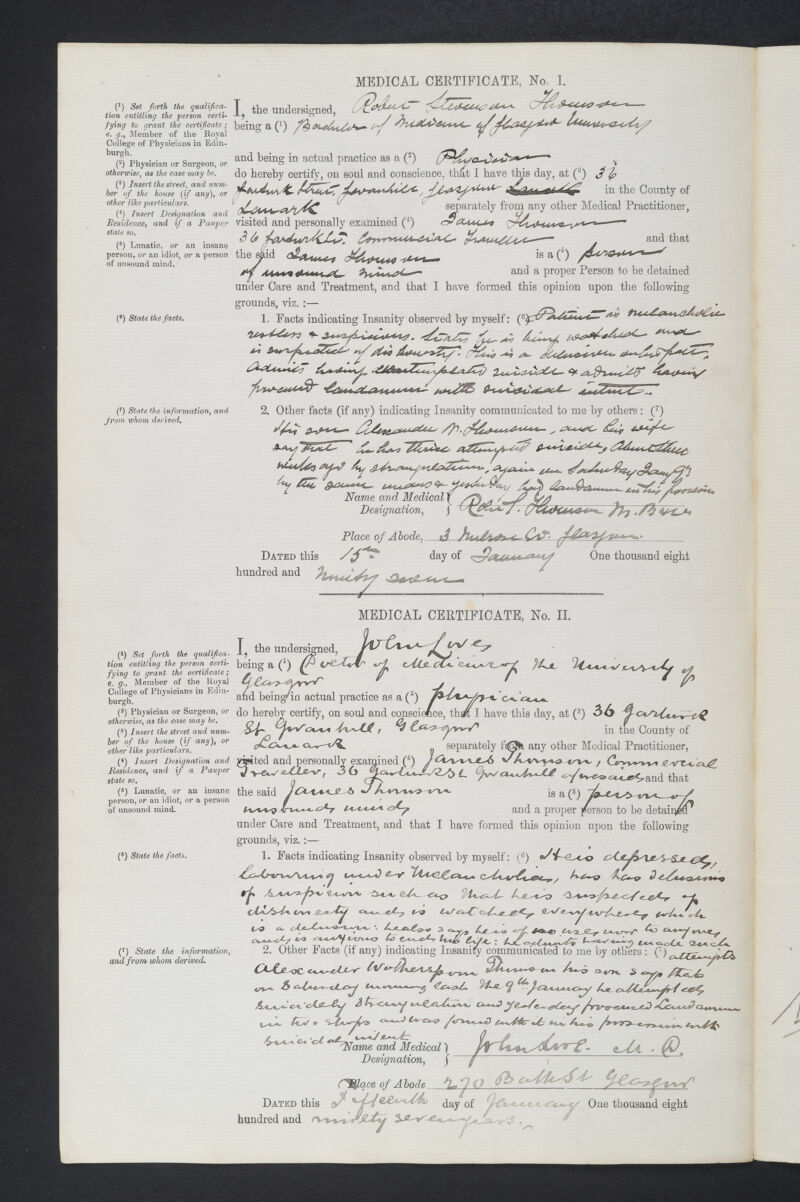 MEDICAL CERTIFICATE, No. I.
(1) Set forth the qualifica-
tion entitling the person certi-
fying to grant the certificate;
e. g., Member of the Royal
College of Physicians in Edin-
burgh.
(2) Physician or Surgeon, or
otherwise, as the case may be.
(3) Insert the street, and num-
ber of the house (if any), or
other like particulars.
(4) Insert Designation and
Residence, and if a Pauper
state so.
(5) Lunatic, or an insane
person, or an idiot, or a person
of unsound mind.
I, the undersigned, Robert Stevenson Thomson
being a (1) Bachelor of Medicine of Glasgow University
and being in actual practice as a (2) Physician
do hereby certify, on soul and conscience, that I have this day, at (3) 36
Street, Govanhill, Glasgow Lanark in the County of
Lanark separately from any other Medical Practitioner,
visited and personally examined (4) James Thomson
36 St. Commercial Traveller and that
the said James Thomson is a (5) person
of unsound mind and a proper Person to be detained
under Care and Treatment, and that I have formed this opinion upon the following
grounds, viz. :—
(6) State the facts.
1. Facts indicating Insanity observed by myself: (6) Patient is melancholic
restless & suspicious. States he is being watched and
is suspected of dishonesty. This is a delusion on his part.
Admits having contemplated suicide & admits having
procured laudanum with suicidal intent.
(7) State the information, and
from whom derived.
2. Other facts (if any) indicating Insanity communicated to me by others: (7)
His son Alexander W. Thomson, and his wife
say that he has thrice attempted suicide, About three
weeks ago by strangulation, again on Saturday Jany 9th
by the same means & yesterday had laudanum in his possession
Name and Medical
Designation, } Robt S. Thomson M.B.
Place of Abode, 3 Melrose St. Glasgow.
DATED this 15th day of January One thousand eight
hundred and Ninety seven
MEDICAL CERTIFICATE, No. II.
(1) Set forth the qualifica-
tion entitling the person certi-
fying to grant the certificate;
e. g., Member of the Royal
College of Physicians in Edin-
burgh.
(2) Physician or Surgeon, or
otherwise, as the case may be.
(3) Insert the street and num-
ber of the house (if any), or
other like particulars.
(4) Insert Designation and
Residence, and if a Pauper
state so.
(5) Lunatic, or an insane
person, or an idiot, or a person
of unsound mind.
I, the undersigned, John Love
being a (1) Doctor of Medicine of the University of
Glasgow
and being in actual practice as a (2) physician
do hereby certify, on soul and conscience, that I have this day, at (3) 36 Garturk
St Govanhill, Glasgow in the County of
Lanark separately from any other Medical Practitioner,
visited and personally examined (4) James Thomson, Commercial
Traveller, 36 Garturk St Govanhill aforesaid and that
the said James Thomson is a (5) person of
unsound mind and a proper person to be detained
under Care and Treatment, and that I have formed this opinion upon the following
grounds, viz. :—
(6) State the facts.
1. Facts indicating Insanity observed by myself: (6) He is depressed,
labouring under Melancholia, has has delusions
of suspicion such as that he is suspected of
dishonesty and is watched everywhere which
is a delusion: he also says he is of no use now to anyone
and is anxious to end his life: he admits having made such
attempts
(7) State the information,
and from whom derived.
2. Other Facts (if any) indicating Insanity communicated to me by others: (7)
Alexander Wotherspoon Thomson his son says that
on Saturday morning last the 9th January he attempted
suicide by Strangulation and yesterday procured Laudanum
in two shops and was found with it in his possession with
suicidal intent
Name and Medical
Designation, } John Love. M. D.
Place of Abode 270 Bath St Glasgow
DATED this Fifteenth day of January One thousand eight
hundred and ninety seven years.